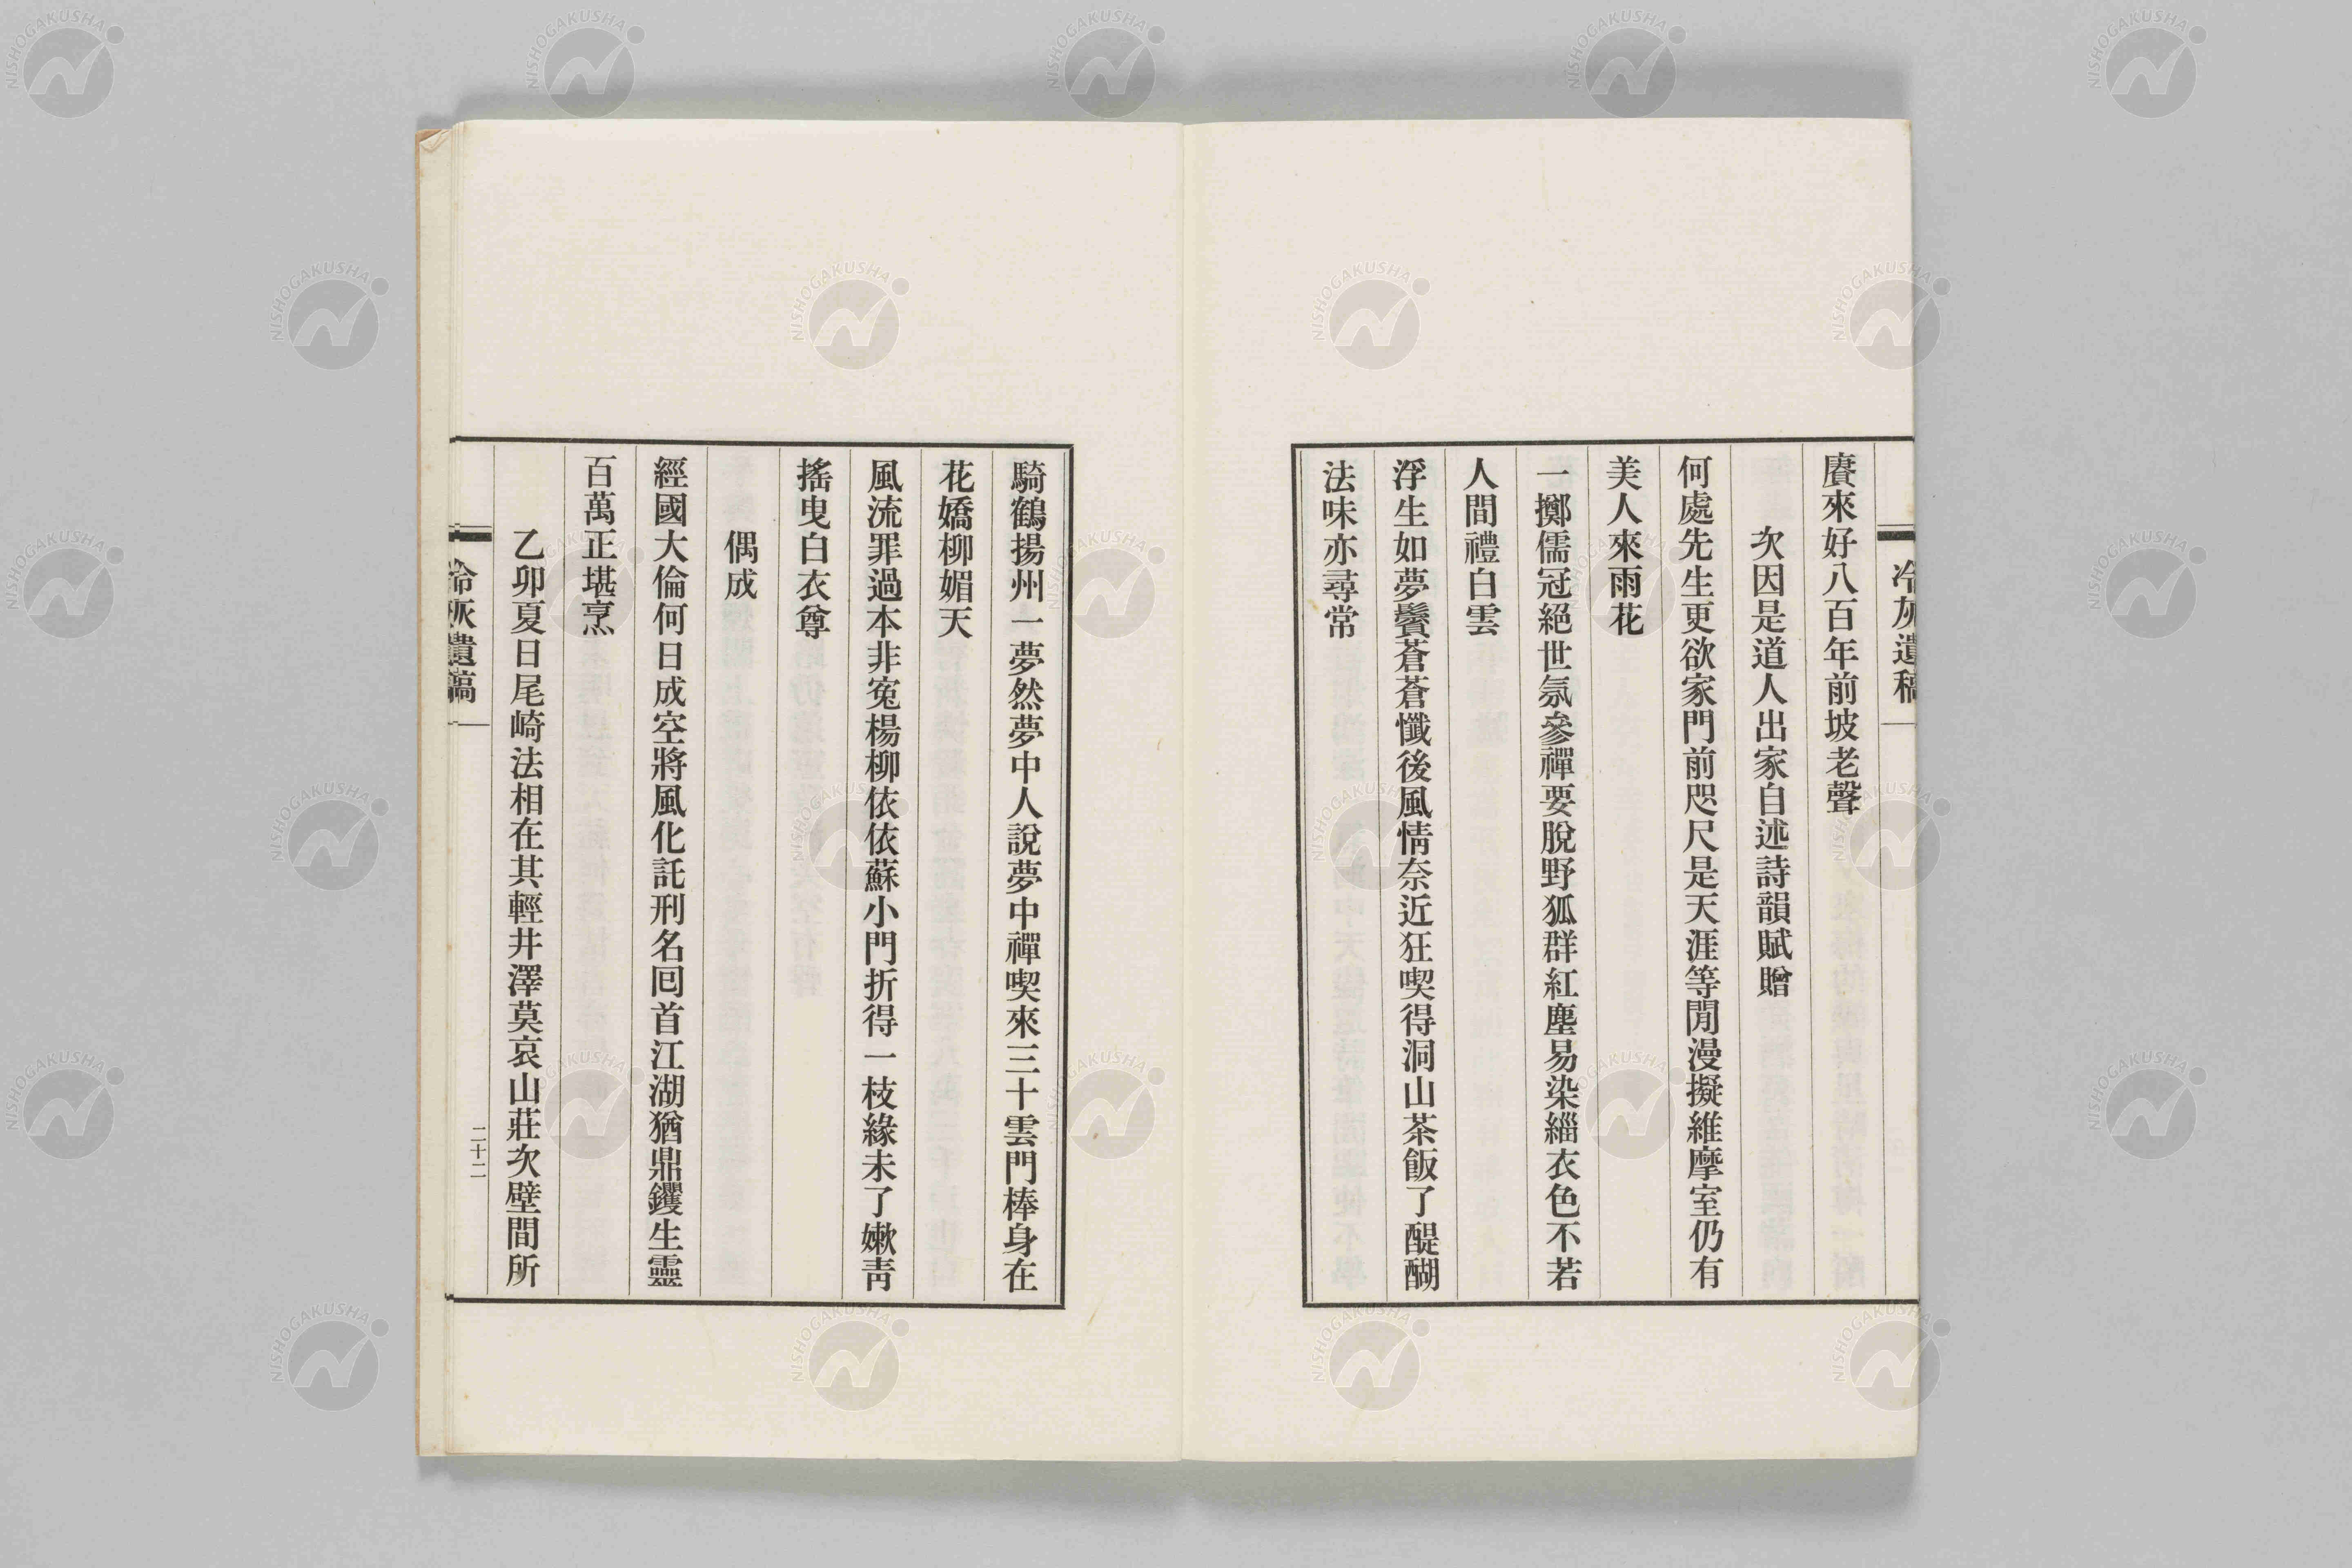 冷灰遺稿
賡來好八百年前坡老聲
次因是道人出家自述詩韻賦贈
何處先生更欲家門前咫尺是天涯等閒漫擬維摩室仍有
美人來雨花
一擲儒冠絕世氛參禪要脫野狐群紅塵易染緇衣色不若
人間禮白雲
浮生如夢鬢蒼蒼懺後風情奈近狂喫得洞山茶飯了醍醐
法味亦尋常
騎鶴揚州一夢然夢中人說夢中禪喫來三十雲門棒身在
花嬌柳媚天
風流罪過本非寃楊柳依依蘇小門折得一枝緣未了嫩靑
搖曳白衣尊
偶成
經國大倫何日成空將風化託刑名囘首江湖猶鼎鑊生靈
百萬正堪烹
乙卯夏日尾崎法相在其輕井澤莫哀山莊次壁間所
冷灰遺稿
二十二
NISHOGAKUSHA